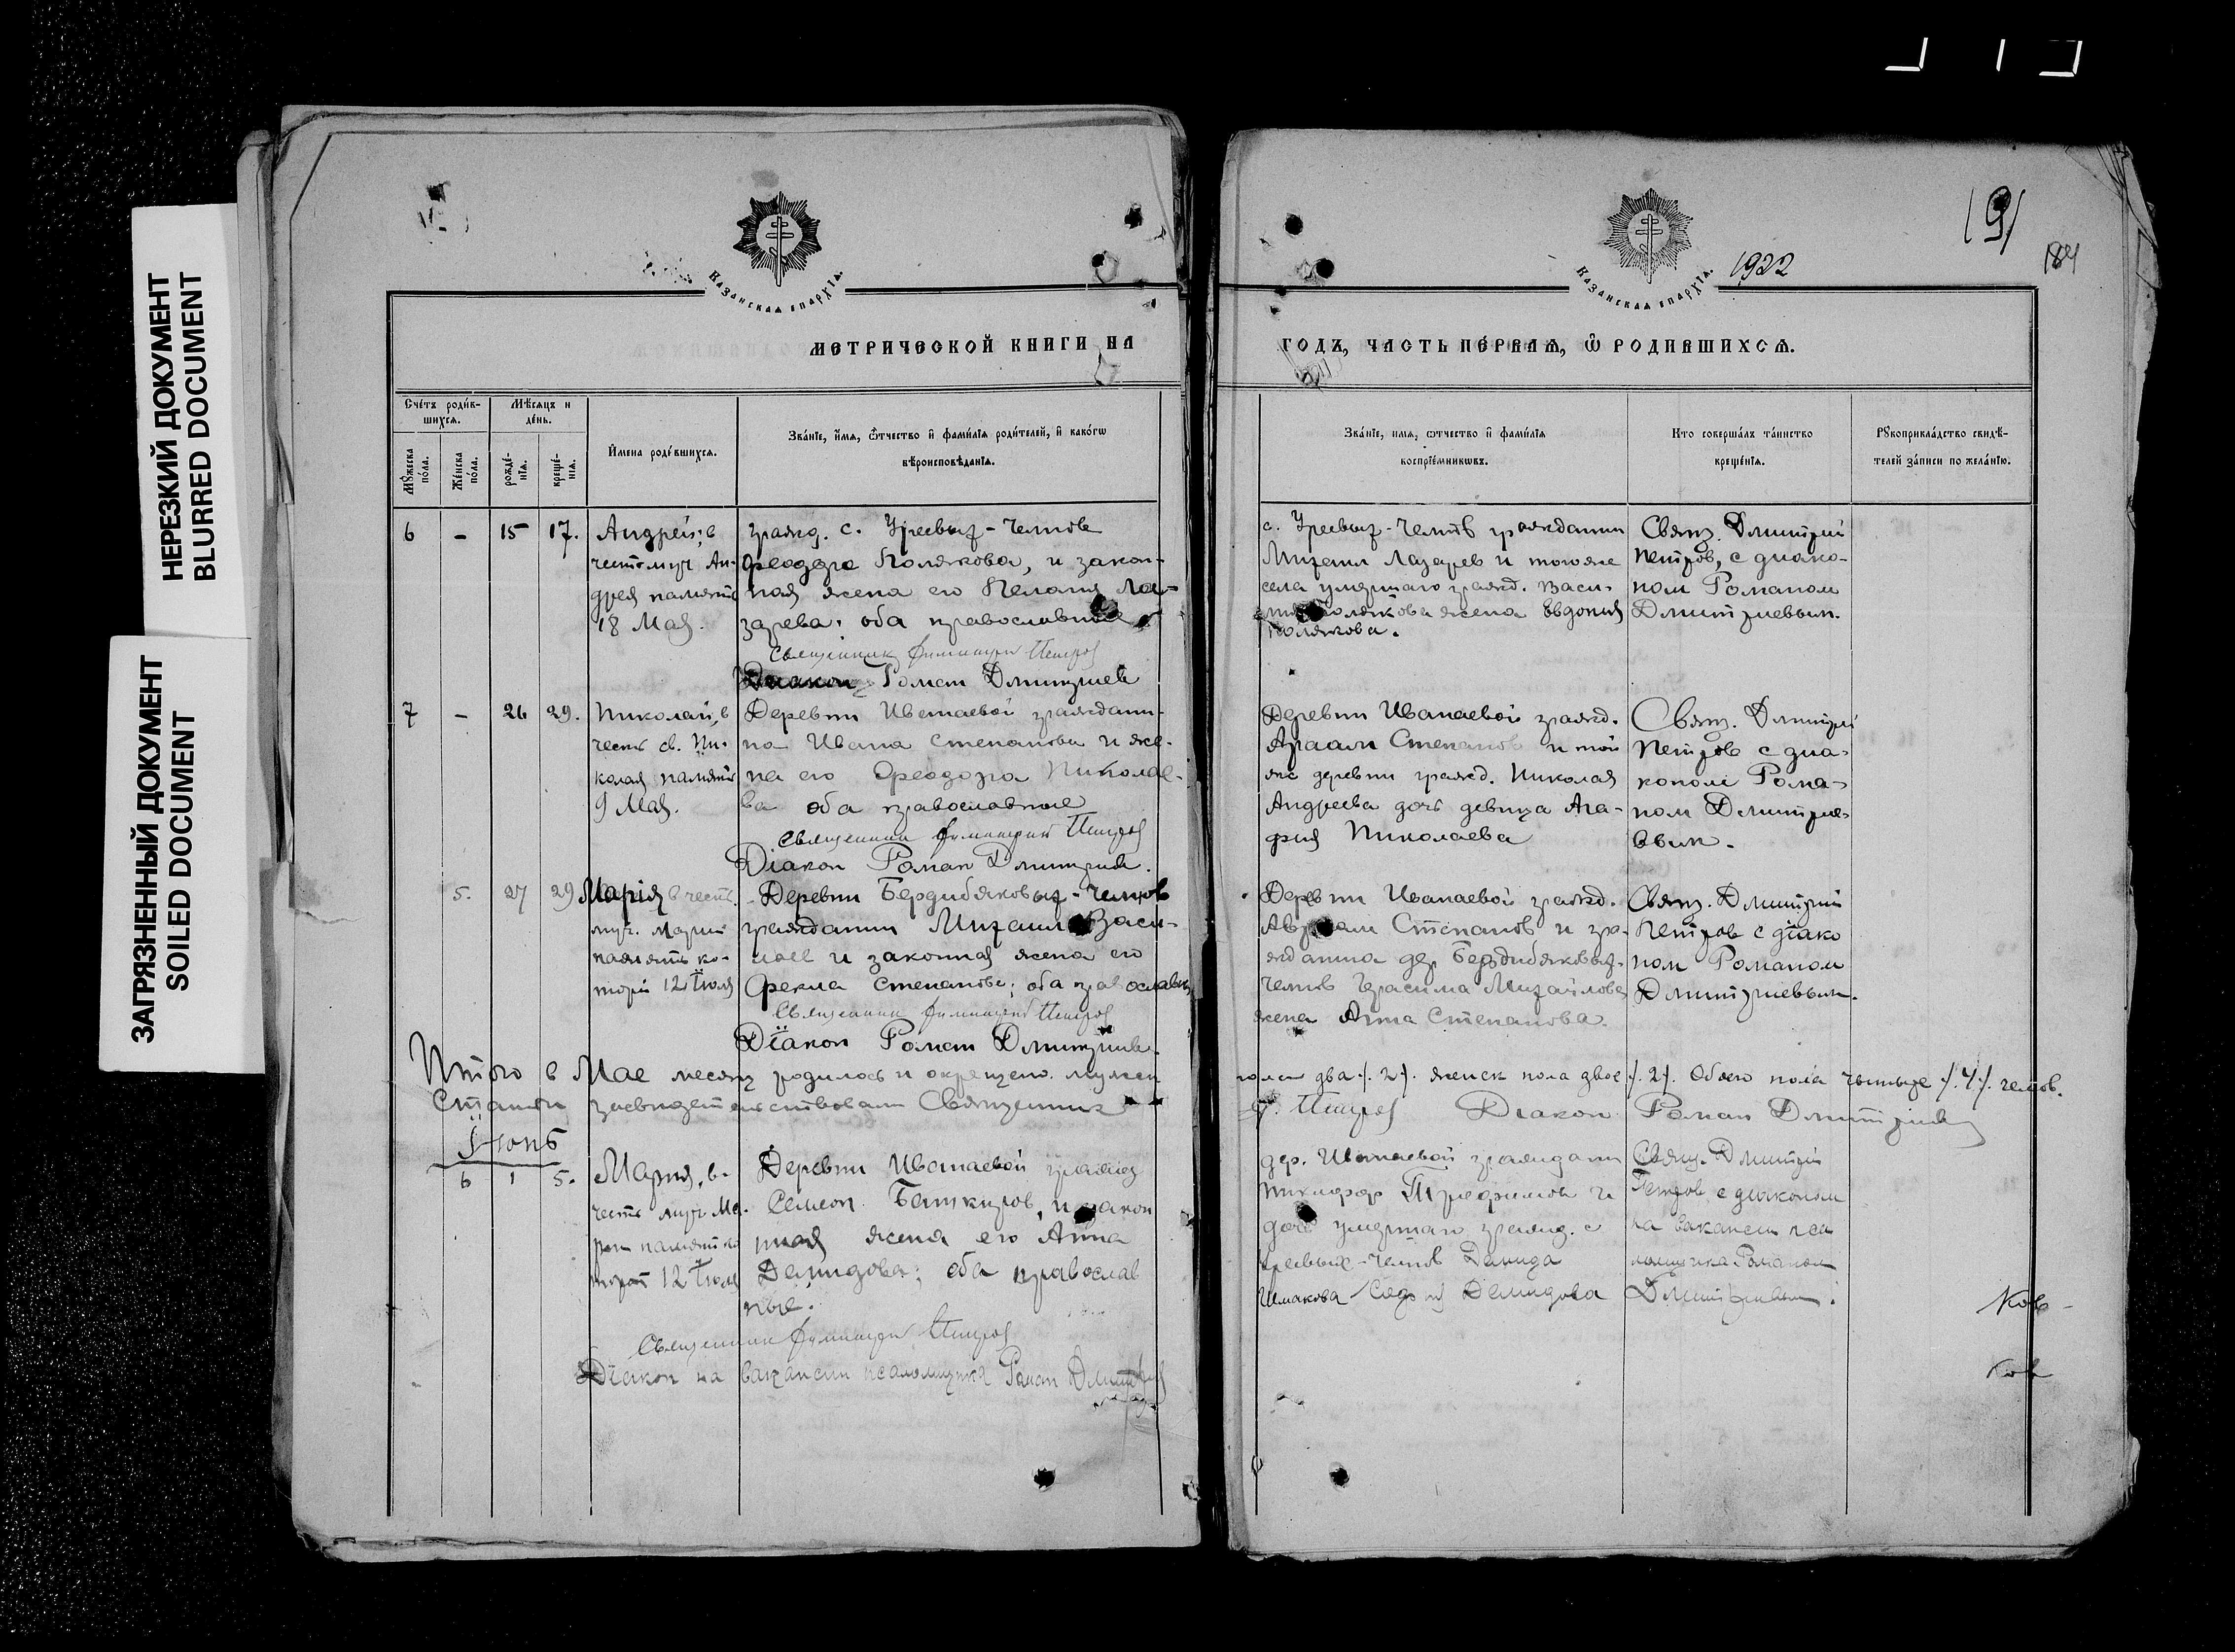 НЕРЕЗКИЙ ДОКУМЕНТ
BLURRED DOCUMENT
ЗАГРЯЗНЕННЫЙ ДОКУМЕНТ
SOILED DOCUMENT
Казанская епархїа.
МЕТРИЧЕСКОЙ КНИГИ НА
Счéтъ родúв-
шихся.
Мѣсяцъ и
дéнь.
Мꙋжеска
пóла.
Жéнска
пóла.
рождé-
нїя.
крещé-
нїя.
И́мена родúвшихся.
Звáнїе, úмя, ѻ́тчество ѝ фамúлїя родúтелей, ѝ какóгѡ
вѣроисповѣданїя.
6 - 15 17. Андрей; в
честь муч. Ан-
дрея память
18 Мая.
гражд. с. Уреевых-Челнов
Феодора Полякова, и закон-
ная жена его Пелагия Ла-
зарева; оба православные
Священник Димитрий Петров
Диакон Роман Дмитриев
7 - 26 29. Николай, в
честь св. Ни-
колая память
9 Мая.
Деревни Иванаевой граждани-
на Ивана Степанова и же-
на его Феодора Николае-
ва оба православные
Священник Димитрий Петров
Діакон Роман Дмитриев.
5. 27 29 Марія в честь
муч. Марии
память ко-
торой 12 Іюля
Деревни Бердибяковых-Челнов
гражданин Михаил Васи-
льев и законная жена его
Фекла Степанова; оба православн
Священник Димитрий Петров
Діакон Роман Дмитриев.
Итого в Мае месяц родилось и окрещено мужск
Статьи засвидетельствовали Священник
Июнь
6 1 5. Мария, в
честь муч. Ма-
рии память ко
торой 12 Іюля
Деревни Иванаевой гражд
Семеон Башкиров, и закон
ная жена его Анна
Демидова; оба православ
ные.
Священник Димитрий Петров
Діакон на вакансии псаломщика Роман Дмитриев
191
184
1922
Казанская епархїа.
ГОДЪ, ЧАСТЬ ПЕ́РВАЯ, Ѿ РОДИВШИХСЯ.
Звáнїе, имя, ѻтчество ѝ фамúлїя
воспрїéмникѡвъ.
Кто совершáлъ тáинство
крещéнїя.
Рꙋкоприклáдство свидѣ-
телей зáписи по желáнїю.
с. Уреевых-Челнов гражданин
Михаил Лазарев и того же
села умершаго гражд. Васи-
Полякова жена Евдокия
Полякова.
Свящ. Дмитрий
Петров, с диако-
ном Романом
Дмитриевым.
Деревни Иванаевой гражд.
Авраам Степанов и той
же деревни гражд. Николая
Андреева дочь девица Ага-
фия Николаева
Свящ. Дмитрий
Петров с диа-
коном Рома-
ном Дмитрие-
вым.
Деревни Иванаевой гражд.
Авраам Степанов и гра-
жданина дер. Бердибяковых-
Челнов Герасима Михайлова
жена Анна Степанова.
Свящ. Дмитрий
Петров с діако
ном Романом
Дмитриевым.
пола два /.2/. женск пола двое /.2/. Обоего пола четыре /.4/. челов.
Д. Петров Діакон Роман Дмитриев
дер. Иванаевой гражданин
Никифор Трофимов и
дочь умершаго гражд. с
Уреевых-Челнов Демида
Шмакова Демидова
Свящ. Дмитрий
Петров, с диаконом
на вакансии пса
ломщика Романом
Дмитриевым.